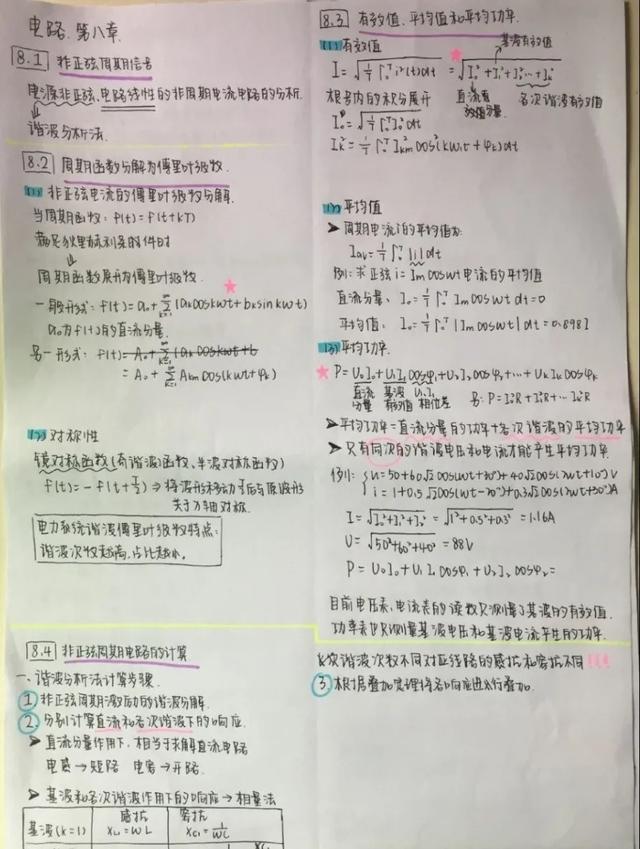 电路 第八章
8.1 非正弦周期信号
电源非正弦、电路线性的非周期电流电路的分析.
↓
谐波分析法.
8.2 周期函数分解为傅里叶级数.
(1) 非正弦电流的傅里叶级数分解.
当周期函数: f(t)=f(t+kT)
满足狄里赫利条件时
↓
周期函数展开为傅里叶级数.
一般形式: f(t)=a₀+∑(aₖcoskwt+bₖsinkwt)
a₀为f(t)的直流分量.
另一形式: f(t)=A₀+∑(aₖcoskwt+b
=A₀+∑Akm cos(kwt+φₖ)
(2) 对称性
镜对称函数(奇谐波函数、半波对称函数)
f(t)=-f(t+T/2)⇒将波形移动T/2后与原波形
关于t轴对称.
电力系统谐波傅里叶级数特点:
谐波次数越高,占比越小.
8.4 非正弦周期电路的计算
一、谐波分析法计算步骤.
① 非正弦周期激励的谐波分解.
② 分别计算直流和各次谐波下的响应.
➤ 直流分量作用下,相当于求解直流电路
电感→短路 电容→开路.
➤ 基波和各次谐波作用下的响应→相量法
感抗 容抗
基波(k=1) XL₁=wL XC₁=1/wC
8.3 有效值、平均值和平均功率.
(1) 有效值 基波有效值
I=√(1/T∫₀ᵀi²(t)dt)=√(I₀²+I₁²+I₂²…+Iₖ²)
根号内的积分展开 直流有效值分量. 各次谐波有效值
I₀²=√(1/T∫₀ᵀI₀²dt
Iₖ²=1/T∫₀ᵀI²km cos²(kw₁t+φₖ)dt
(2) 平均值
➤ 周期电流i的平均值为:
Iav=1/T∫₀ᵀ|i|dt
例:求正弦i=Imcoswt电流的平均值
直流分量: I₀=1/T∫₀ᵀImcoswtdt=0
平均值: I₀=1/T∫₀ᵀ|Imcoswt|dt=0.898I
(3) 平均功率.
P=U₀I₀+U₁I₁cosφ₁+U₂I₂cosφ₂+…+UₖIₖcosφₖ
直流分量 基波有效值 U₁I₁相位差 另:P=I₀²R+I₁²R+…Iₖ²R
➤ 平均功率=直流分量的功率+各次谐波的平均功率
➤ 只有同次的谐波电压和电流才能产生平均功率.
例: u=50+60√2cos(wt+30°)+40√2cos(2wt+10°)V
i=1+0.5√2cos(wt-20°)+0.3√2cos(2wt+50°)A
I=√(I₀²+I₁²+I₂²)=√(1²+0.5²+0.3²)=1.16A
U=√(50²+60²+40²)=88V
P=U₀I₀+U₁I₁cosφ₁+U₂I₂cosφ₂=
目前电压表、电流表的读数只测量了基波的有效值.
功率表也只测量基波电压和基波电流产生的功率.
次谐波次数不同对应线路的感抗和容抗不同!!!
③ 根据叠加定理将各响应进行叠加.